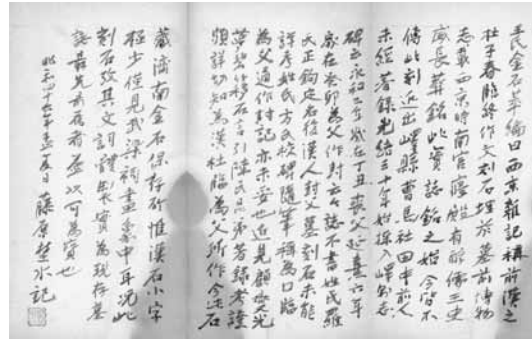 王氏金石萃編曰西京雜記稱前漢之
杜子春臨終作文刻石埋於墓前博物
志載西京時南宮寢殿有醇儒王史
威長葬銘此實誌銘之始今皆不
傳此刻近出嶧縣曹馬社田中前人
未經著錄光緒三十年始採入嶧縣志
碑云永和二年歲在丁丑喪父延熹六年
歲在癸卯為父作封云々誌不書姓氏羅
氏正鈞定名後漢人封父墓刻石未能
詳考姓氏方氏校碑隨筆稱為口臨
為父通作封記亦未妥也近見顧燮光
夢碧簃石言引陳氏昌沂著錄考證
頗詳乃知為漢杜臨為父所作今此石
藏濟南金石保存所惟漢石小字
極少僅見武梁祠畫象中耳況此
刻石攷其文詞謹嚴實為現存墓
誌最先者可為寶也
昭和四十六年夏日 藤原楚水記